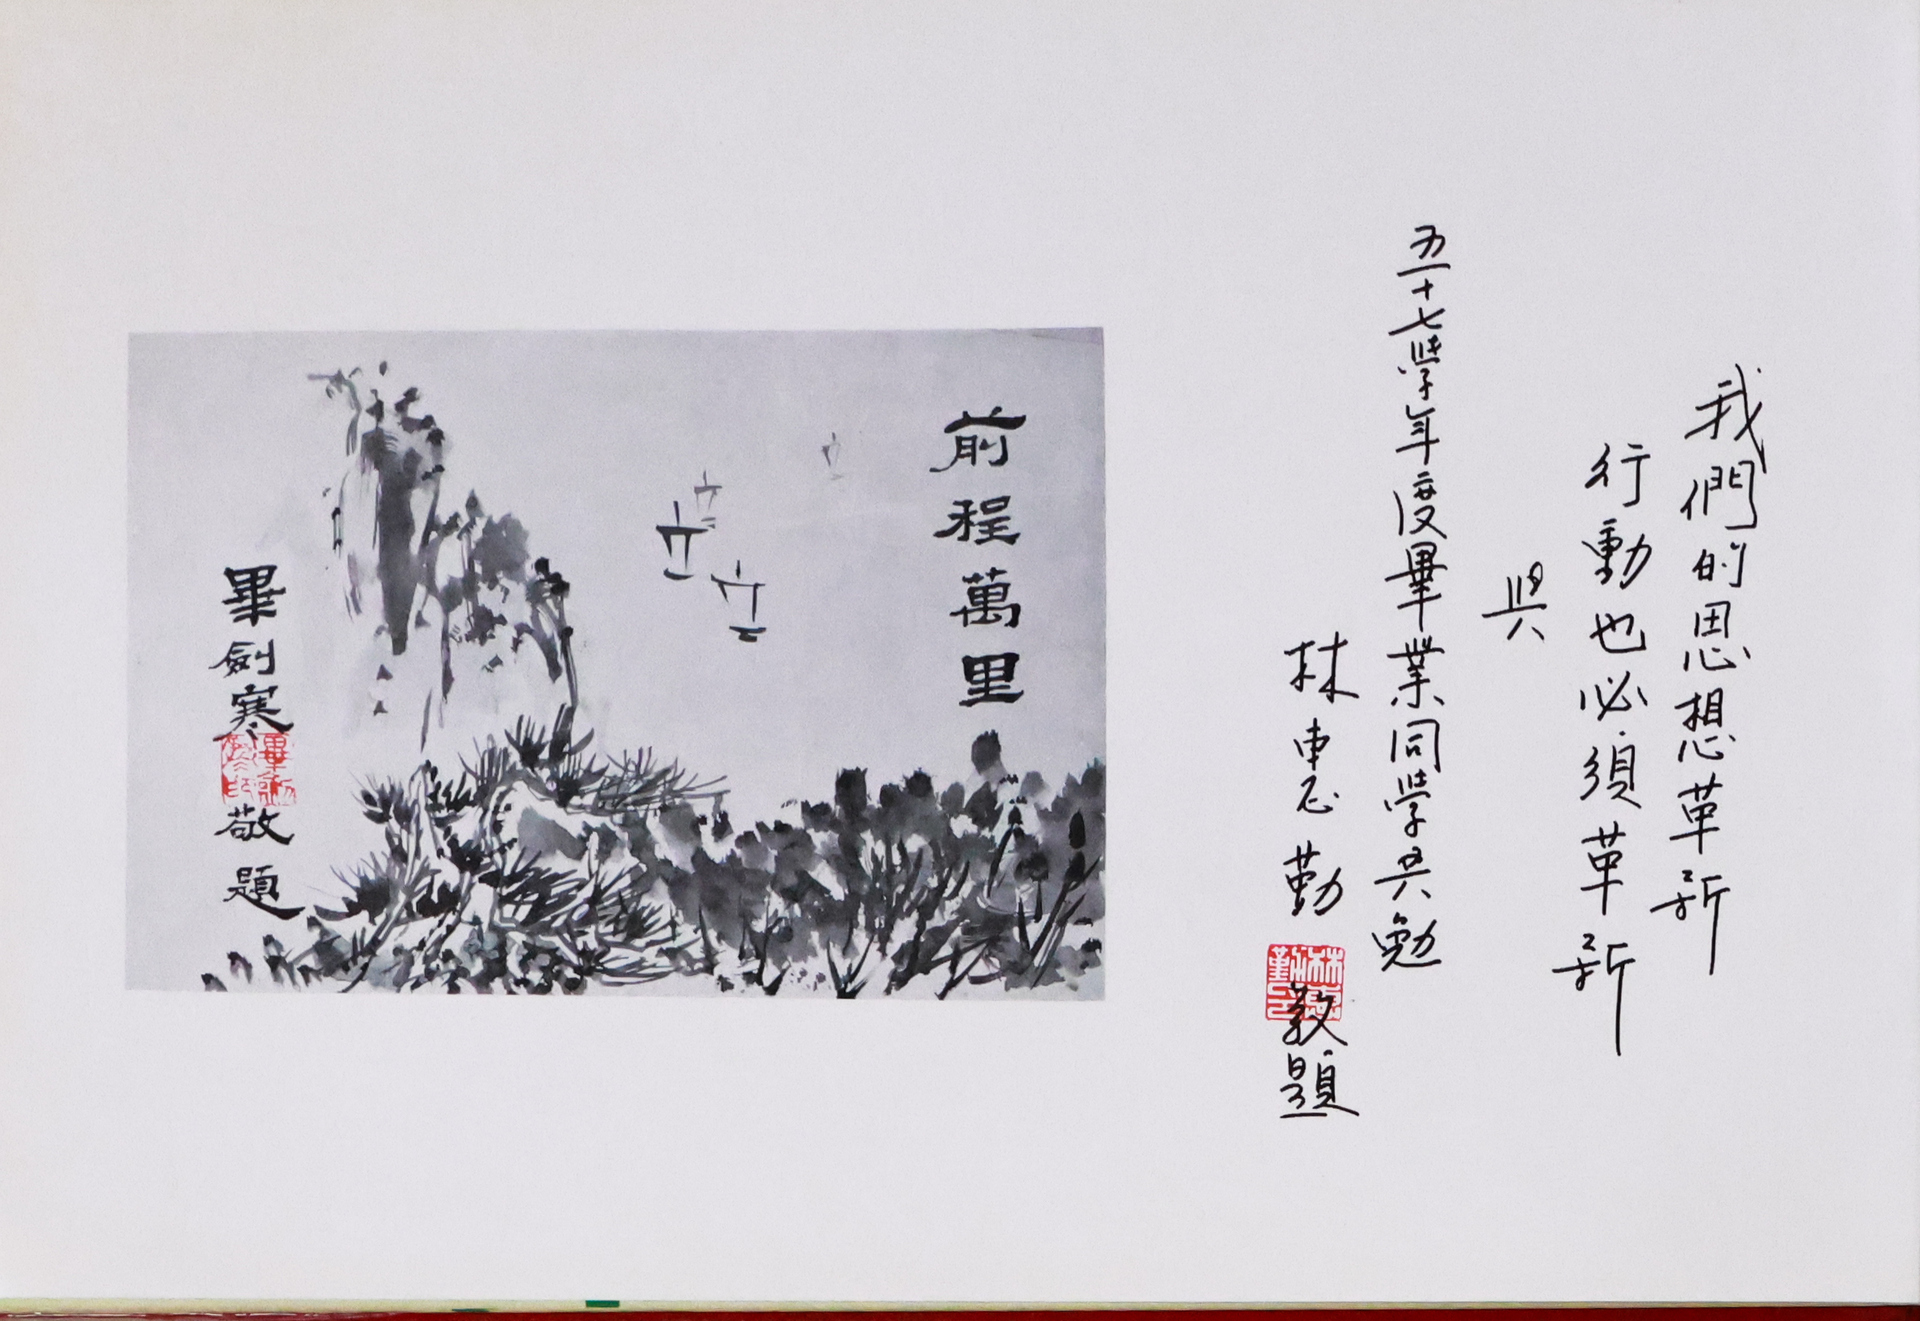 我們的思想革新
行動也必須革新
與
五十七學年度畢業同學共勉
林惠勤敬題
前程萬里
畢劍寒敬題